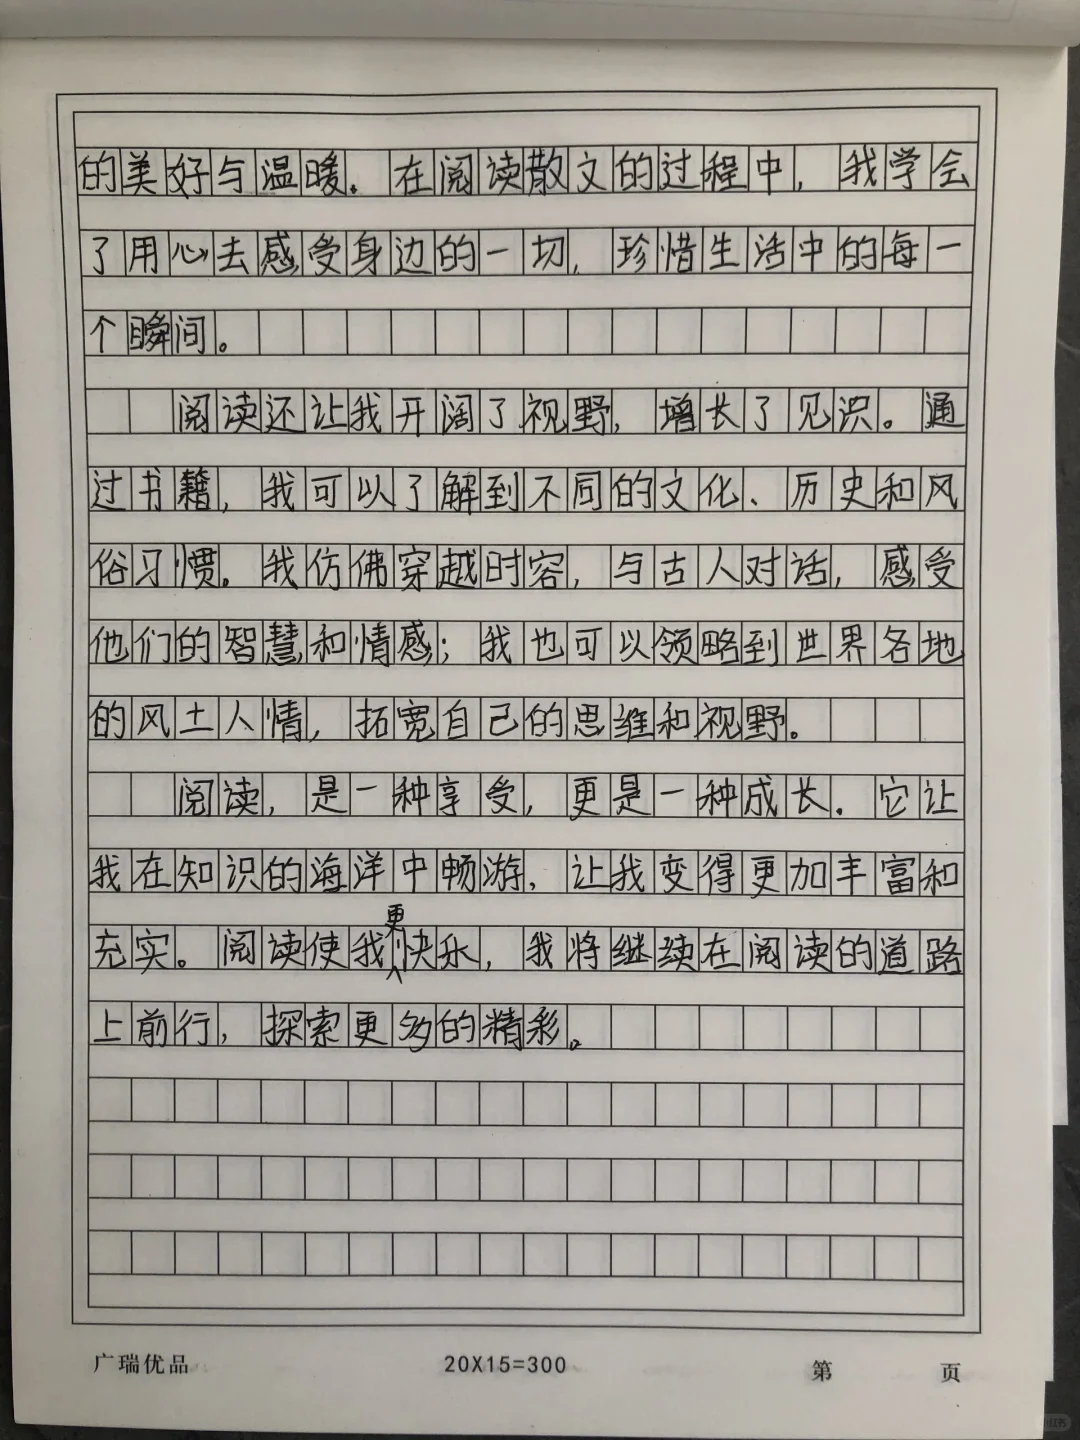 的美好与温暖。在阅读散文的过程中，我学会
了用心去感受身边的一切，珍惜生活中的每一
个瞬间。
阅读还让我开阔了视野，增长了见识。通
过书籍，我可以了解到不同的文化、历史和风
俗习惯。我仿佛穿越时容，与古人对话，感受
他们的智慧和情感；我也可以领略到世界各地
的风土人情，拓宽自己的思维和视野。
阅读，是一种享受，更是一种成长．它让
我在知识的海洋中畅游，让我变得更加丰富和
充实。阅读使我更快乐，我将继续在阅读的道路
上前行，探索更多的精彩。
广瑞优品 20X15=300 第 页